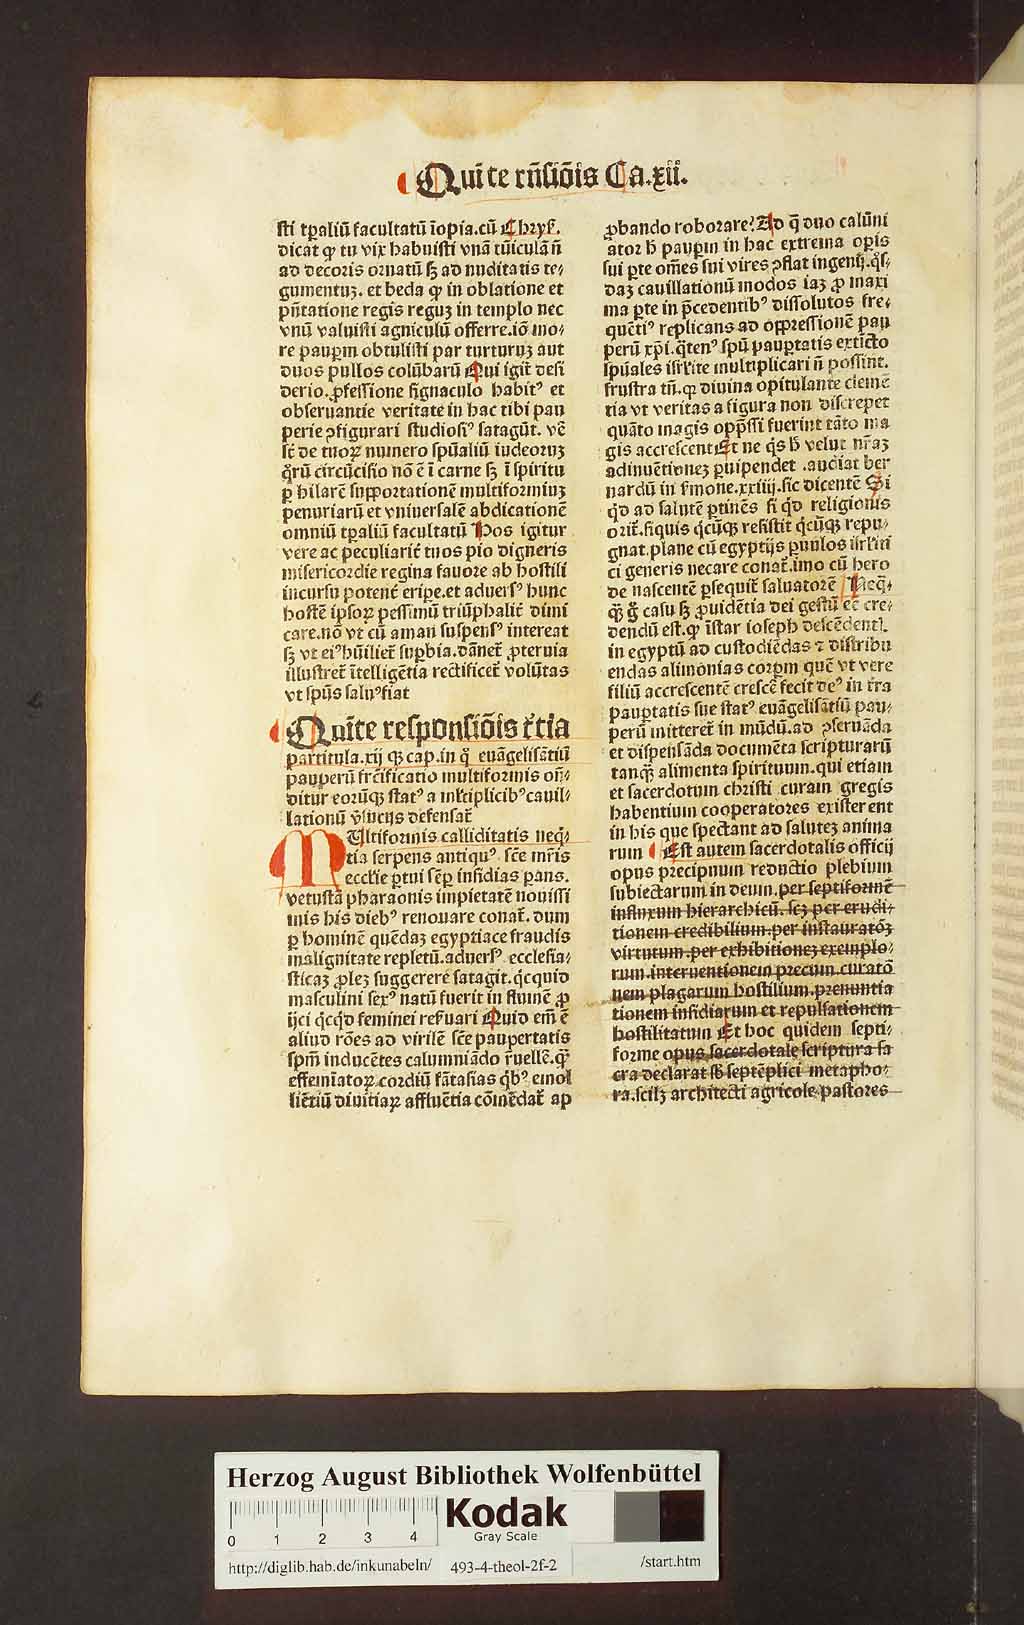 Quīte rn̄siōis Ca.xii.
sti tp̱aliū facultatū īopia.cū Chrys.
dicat ꝙ tu vix habuisti vnā tūiculā n̄
ad decoris ornatū sꝫ ad nuditatis te⸗
gumentuꝫ. et beda ꝙ in oblatione et
pn̄tatione regis reguꝫ in templo nec
vnū valuisti agniculū offerre.iō mo⸗
re paupm̄ obtulisti par turturuꝫ aut
duos pullos colūbarū Qui igit̄ desi
derio.ꝓfessione signaculo habitꝰ et
obseruantie veritate in hac tibi pau
perie ꝯfigurari studiosiꝰ satagūt. vē
sc̄t de tuoꝝ numero spūaliū iudeoruꝫ
qͦrū circūcisio nō ē ī carne sꝫ ī spiritu
ꝑ hilarē supportationē multiformiuꝫ
penuriarū et vniuersalē abdicationē
omniū tp̱aliū facultatū Hos igitur
vere ac peculiarit̄ tuos pio digneris
misericordie regina fauore ab hostili
incursu potent̄ eripe.et aduersꝰ hunc
hostē ipsoꝝ pessimū triūphalit̄ dimi
care.nō vt cū aman suspensꝰ intereat
sꝫ vt eiꝰ hūiliet̄ supbia.dānet̄ ꝓteruia
illustret̄ ītelligētia rectificet̄ volūtas
vt spūs saluꝰ fiat
Quīte responsiōis t̄tia
partitula.xij qꝫ cap.in qͦ euāgelisātiū
pauperū fr̄cificatio multiformis on̄⸗
ditur eorūqꝫ statꝰ a ml̄tiplicibꝰ cauil⸗
lationū v̄sucijs defensat̄
MUltiformis calliditatis neq̄⸗
tia serpens antiquꝰ sc̄e mr̄is
eccl̄ie ꝑtui sēꝑ insidias ꝑans.
vetustā pharaonis impietatē nouissi
mis his diebꝰ renouare conat̄. dum
ꝑ hominē quēdaꝫ egyptiace fraudis
malignitate repletū.aduersꝰ ecclesia⸗
sticaꝫ ꝓleꝫ suggerere satagit.qͥcquid
masculini sexꝰ natū fuerit in flumē ꝓ
ijci qͥcqͥd feminei reſuari Quid em̄ ē
aliud rōes ad virilē sc̄e paupertatis
spm̄ inducētes calumniādo r̄uelle.qͣꝫ
effemīatoꝝ cordiū fātasias qͥbꝰ emol
liētiū diuitiaꝝ affluētia cōmēdat̄ ap
ꝓbando roborare? Ad q̄ duo calūni
ator h̄ paupm̄ in hac extrema opis
sui ꝑte om̄es sui vires ꝯflat ingenij.qͣs⸗
daꝫ cauillationū modos iaꝫ ꝓ maxi
ma ꝑte in p̄cedentibꝰ dissolutos fre⸗
quētiꝰ replicans ad oppressionē pau
perū xp̄i.qͣtenꝰ spū pauꝑtatis extīcto
spūales isrl̄ite multiplicari n̄ possint.
frustra tn̄.qꝫ diuina opitulante clemē
tia vt veritas a figura non discrepet
quāto magis opp̄ssi fuerint tāto ma
gis accrescent Et ne qͥs h̄ velut nr̄aꝫ
adinuētioneꝫ ꝑuipendet .audiat ber
nardū in s̄mone.xxiiij.sic dicentē Si
qͥd ad salutē ꝑtinēs si qͥd religionis
orit̄.siquis qͥcūqꝫ resistit qͥcūqꝫ repu⸗
gnat.plane cū egyptijs ꝑuulos isrl̄iti
ci generis necare conat̄.imo cū hero
de nascentē ꝑsequit̄ saluatorē Neq̄⸗
qͣꝫ gͦ casu sꝫ ꝓuidētia dei gestū eē cre⸗
dendū est.ꝙ īstar ioseph descēdenti.
in egyptū ad custodiēdas ⁊ distribu
endas alimonias corpm̄ quē vt vere
filiū accrescentē crescē fecit deꝰ in tr̄a
pauꝑtatis sue statꝰ euāgelisātiū pau⸗
perū mitteret̄ in mūdū.ad ꝯseruāda
et dispensāda documēta scripturarū
tanqͣꝫ alimenta spirituum.qui etiam
et sacerdotum christi curam gregis
habentium cooperatores existerent
in his que spectant ad saluteꝫ anima
rum Est autem sacerdotalis officij
opus precipuum reductio plebium
subiectarum in deum.per septiformē
influxum hierarchicū. scꝫ per erudi⸗
tionem credibilium.per instauratōꝫ
virtutum.per exhibitioneꝫ exemplo⸗
rum.interuentionem precum.curatō
nem plagarum hostilium.prenuntia
tionem insidiarum et repulsationem
hostilitatum Et hoc quidem septi⸗
forme opus sacerdotale scriptura sa
cra declarat sb̄ septēplici metapho⸗
ra.scilꝫ architecti agricole pastores
Herzog August Bibliothek Wolfenbüttel
0 1 2 3 4
Kodak
Gray Scale
http://diglib.hab.de/inkunabeln/ 493-4-theol-2f-2 /start.htm